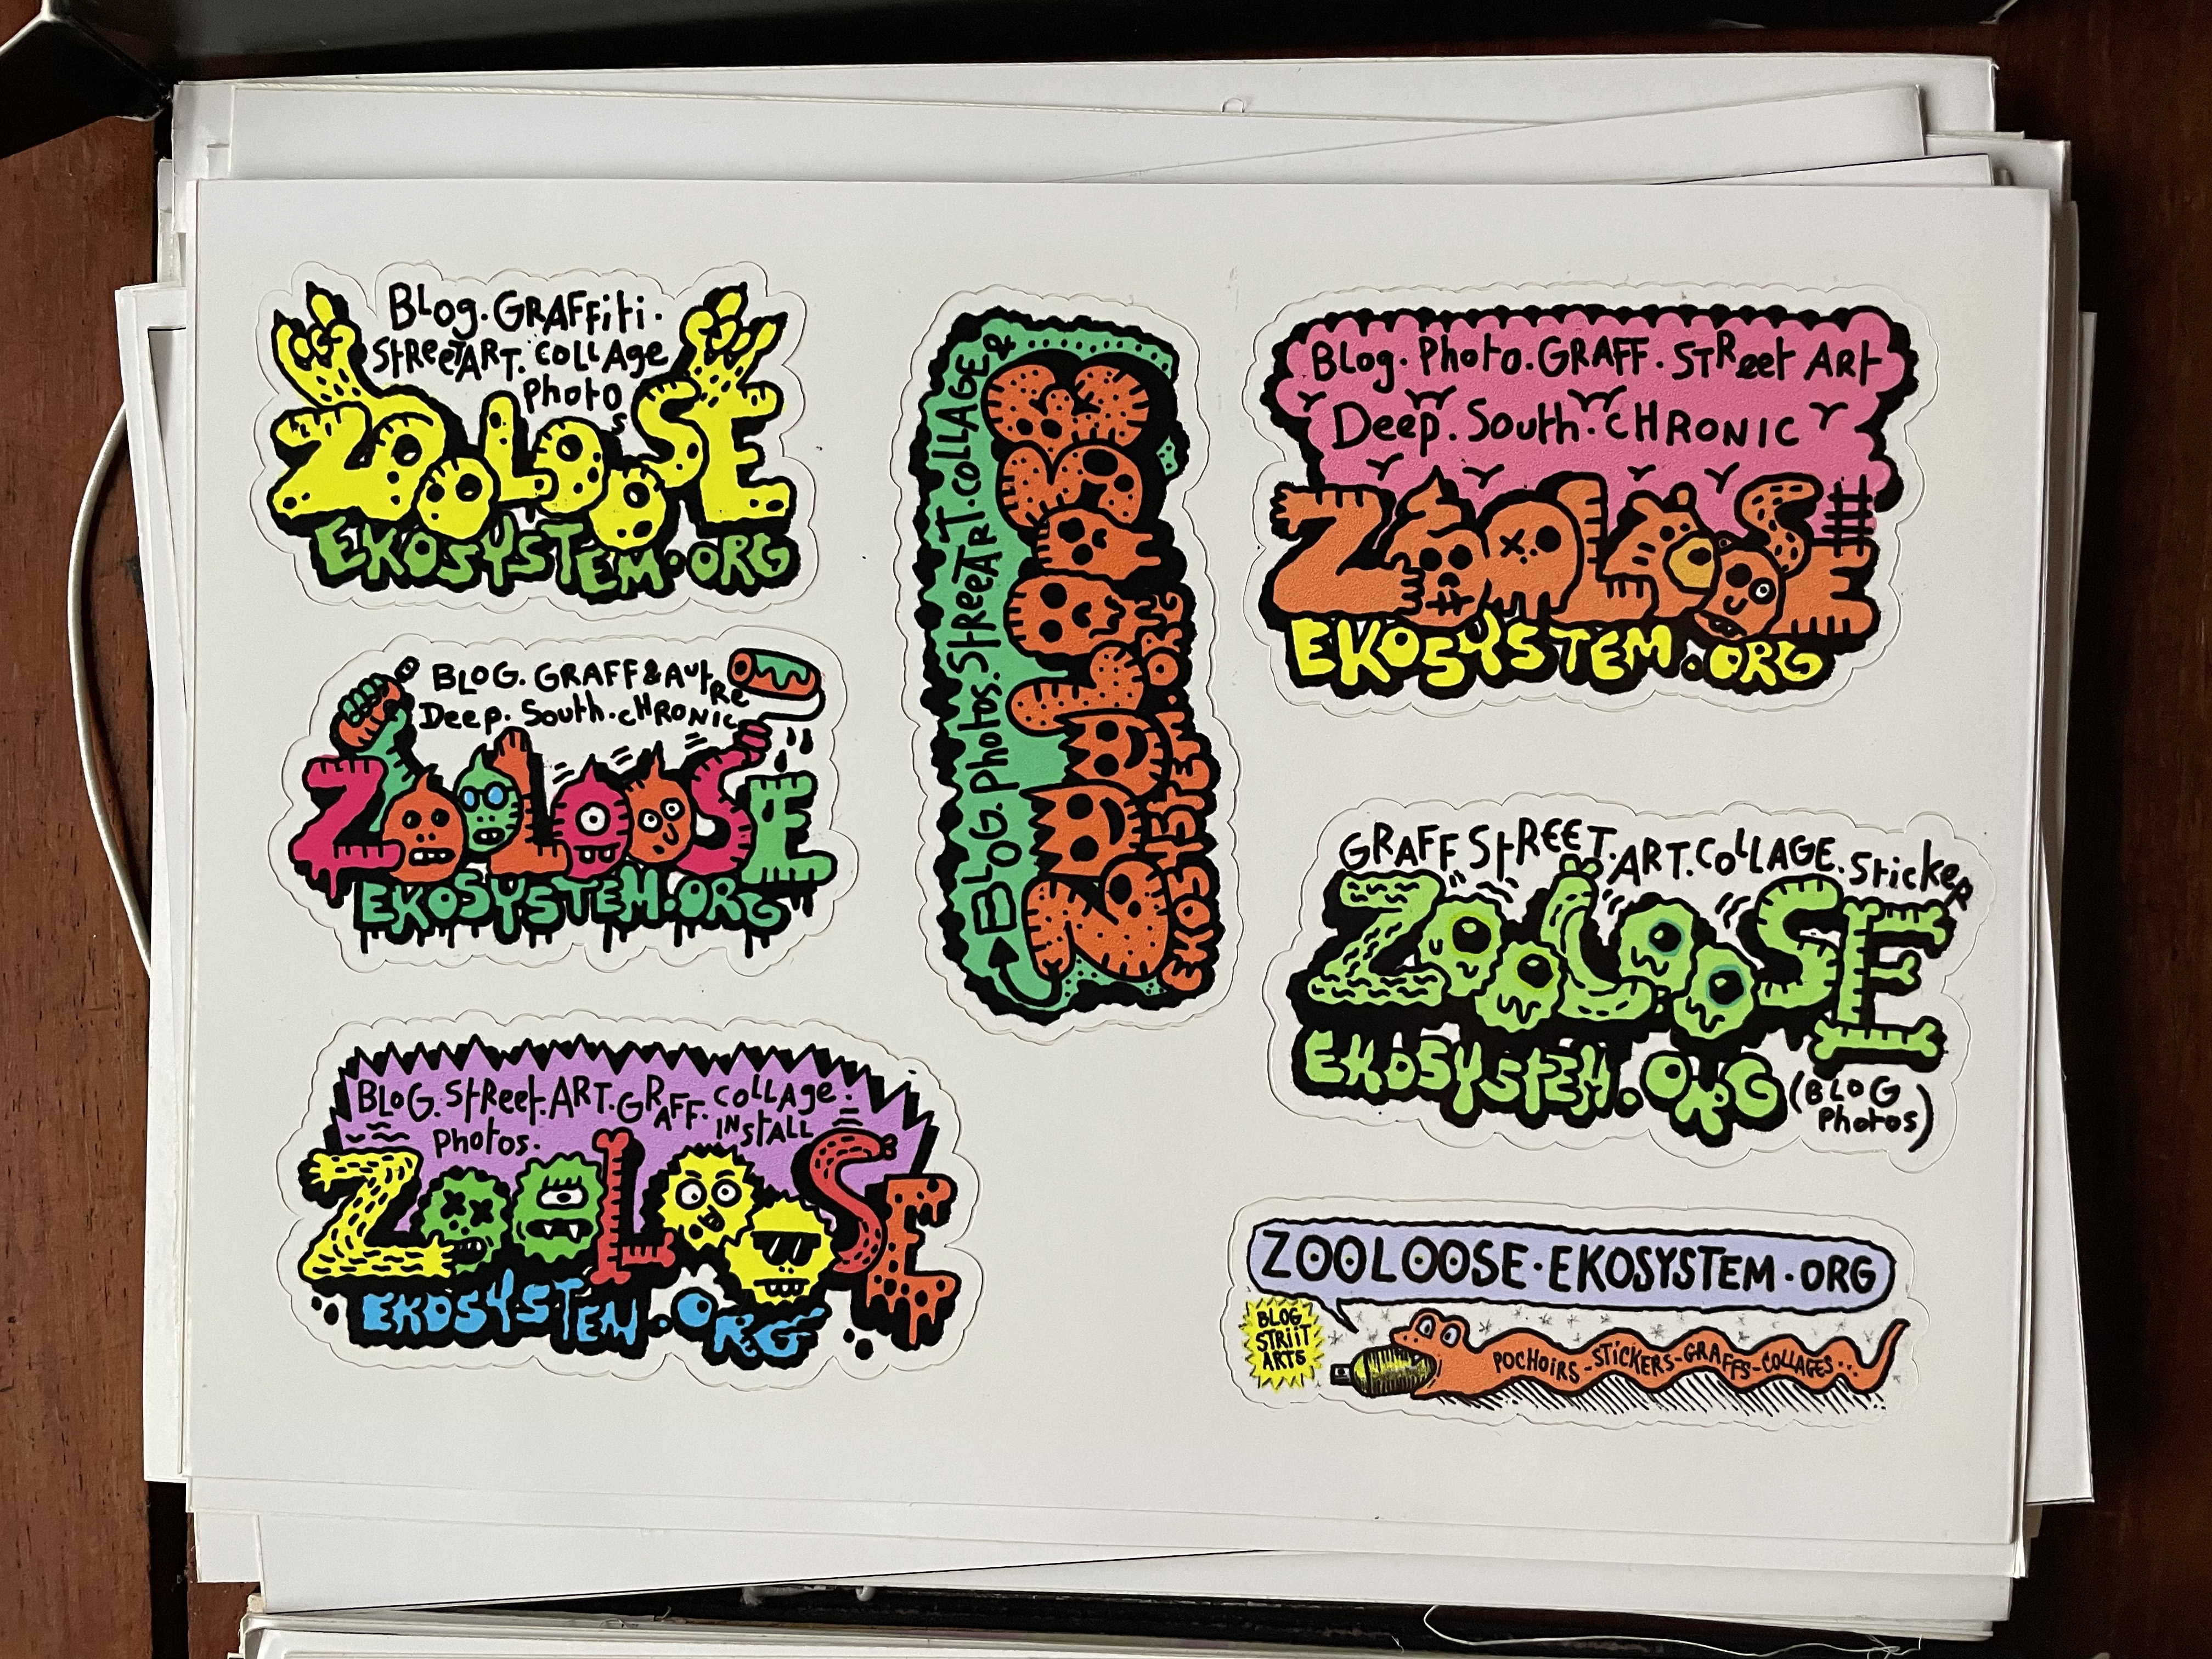 BLog. GRAFFiti.
StReetART. COLLAge
Photos
ZOOLOOSE
EKOSYSTEM.ORG
BLOG. GRAFF & AutRe
Deep. South. CHRONIC
ZOOLOOSE
EKOSYSTEM.ORG
BLOG. StReet. ART. GRAFF. COLLAge.
Photos. INStALL
ZOOLOOSE
EKOSYSTEM.ORG
BLOG. Photos. StReetART. COLLAGE &
ZOOLOOSE
EKOSYSTEM.ORG
Blog. Photo. GRAFF. StReet ARt
Deep. South. CHRONIC
ZOOLOOSE
EKOSYSTEM.ORG
GRAFF. StREET. ART. COLLAGE. StickeR
ZOOLOOSE
EKOSYStEM.ORG (BLOG
Photos)
ZOOLOOSE.EKOSYSTEM.ORG
BLOG
STRIIT
ARTS
POCHOIRS-STICKERS-GRAFFS-COLLAGES..